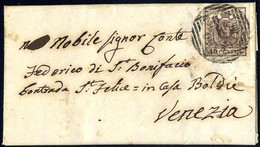 Nobile Signor Conte
Federico di S.t Bonifacio
Contrada S.t Felice = in Casa Boldù
Venezia